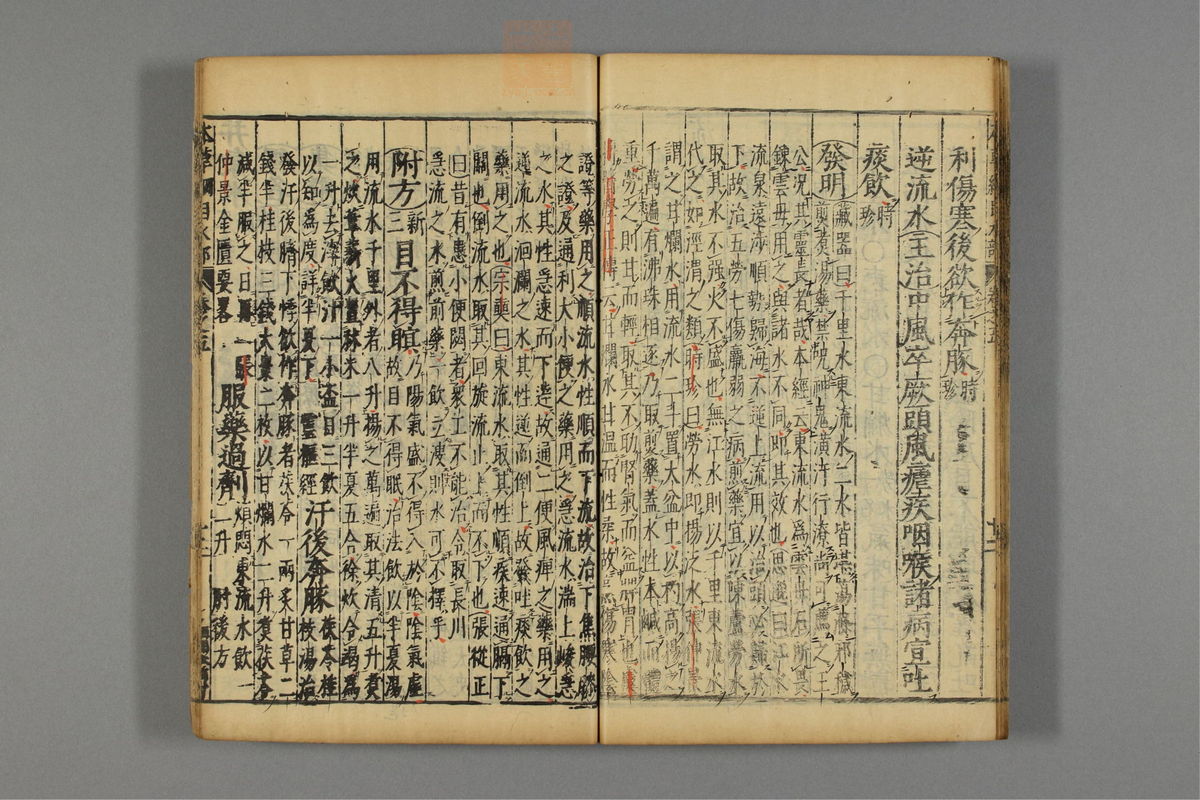 利傷寒後欲作奔豚時珍
逆流水主治中風卒厥頭風瘧疾咽喉諸病宣吐
痰飲時珍
發明藏器曰千里水東流水二水皆堪蕩滌邪穢
煎煮湯藥禁呪神鬼潢汙行潦尚可薦之王
公况其靈長者哉本經云東流水爲雲母石所畏
鍊雲母用之與諸水不同卽其效也思邈曰江水
流泉遠涉順勢歸海不逆上流用以治頭必歸於
下故治五勞七傷羸弱之病煎藥宜以陳蘆勞水
取其水不強火不盛也無江水則以千里東流水
代之如涇渭之類時珍曰勞水卽揚泛水張仲景
謂之甘爛水用流水二斗置大盆中以杓高揚之
千萬遍有沸珠相逐乃取煎藥蓋水性本鹹而體
重勞之則甘而輕取其不助腎氣而益脾胃也
甘爛水甘温而性柔故烹傷寒陰
證等藥用之順流水性順而下流故治下焦腰膝
之證及通利大小便之藥用之急流水湍上峻急
之水其性急速而下達故通二便風痺之藥用之
逆流水洄瀾之水其性逆而倒上故發吐痰飲之
藥用之也宗奭曰東流水取其性順疾速通膈下
關也倒流水取其回旋流止上而不下也張從正
曰昔有患小便閟者衆工不能治令取長川
急流之水煎前藥一飲立溲則水可不擇乎
附方新三目不得眠乃陽氣盛不得入於陰陰氣虛
故目不得眠治法飲以半夏湯
用流水千里外者八升揚之萬遍取其清五升煮
之炊葦薪火置秫米一升半夏五合徐炊令竭爲
一升去滓飲汁一小盃日三飲
以知爲度詳半夏下靈樞經汗後奔豚茯苓桂枝湯治
發汗後臍下悸欲作奔豚者茯苓一兩炙甘草二
錢半桂枝三錢大棗二枚以甘爛水二升煮茯苓
減半服之日三張
仲景金匱要略服藥過劑煩悶東流水飲一
二升肘後方